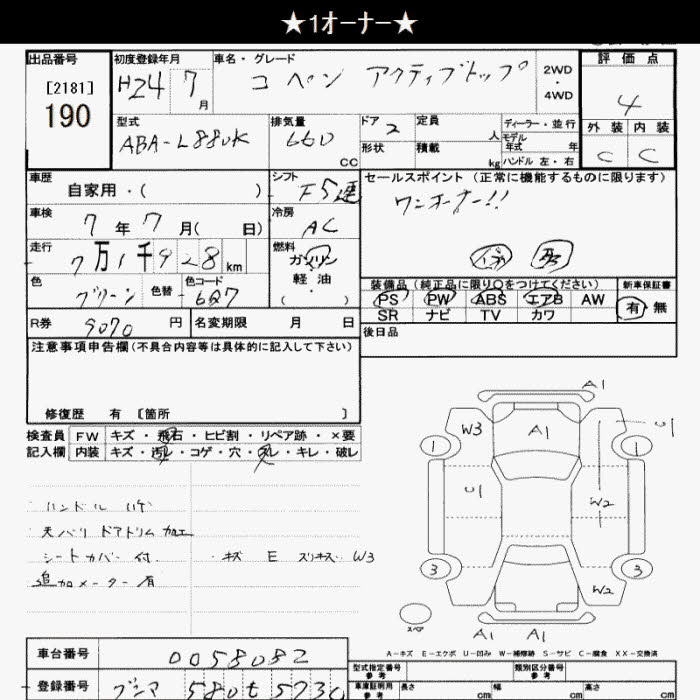 ★1オーナー★
出品番号 初度登録年月 車名・グレード 評価点
[2181]
190
H24 7 月
コペン アクティブトップ
2WD
・
4WD
4
型式 排気量 ドア 定員 ディーラー・並行 外装 内装
ABA-L880K 660 CC 2 人 モデル年式 年
形状 積載 kg ハンドル 左・右 C C
車歴 シフト セールスポイント (正常に機能するものに限ります)
自家用・( ) F5速 ワンオーナー!!
車検 冷房
7年7月( 日) AC
走行 燃料
7万1千928km ガソリン
軽油
( ・ )
色 色替 色コード
グリーン 627
装備品 (純正品に限り○をつけてください) 新車保証書
PS PW ABS エアB AW 有・無
SR ナビ TV カワ
R券 9070 円 名変期限 月 日
後日品
注意事項申告欄 (不具合内容等は具体的に記入して下さい)
修復歴 有 〔箇所 〕
検査員 FW キズ・飛石・ヒビ割・リペア跡・×要
記入欄 内装 キズ・汚レ・コゲ・穴・スレ・キレ・破レ
ハンドル
天バリ ドアトリム 加工
シートカバー付 ・キズ E スリキズ W3
追加メーター有
A1
W3 A1 U1
1 1
U1 W2
3 3
W2
スペア A1 A1
A-キズ E-エクボ U-凹み W-補修跡 S-サビ C-腐食 XX-交換済
車台番号 0058082
型式指定番号 参考 類別区分番号 参考
登録番号 580 5730
車庫証明用 参考 長さ cm 幅 cm 高さ cm